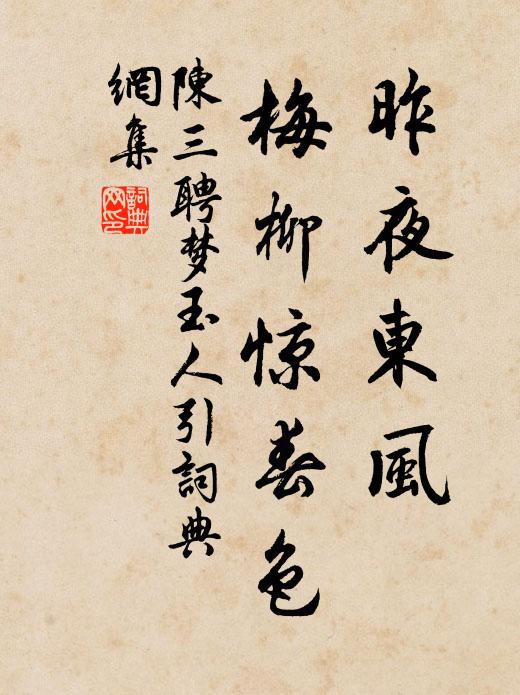 昨夜東風
梅柳惊春色
陳三聘梦玉人引詞典
網集
詞典
网印